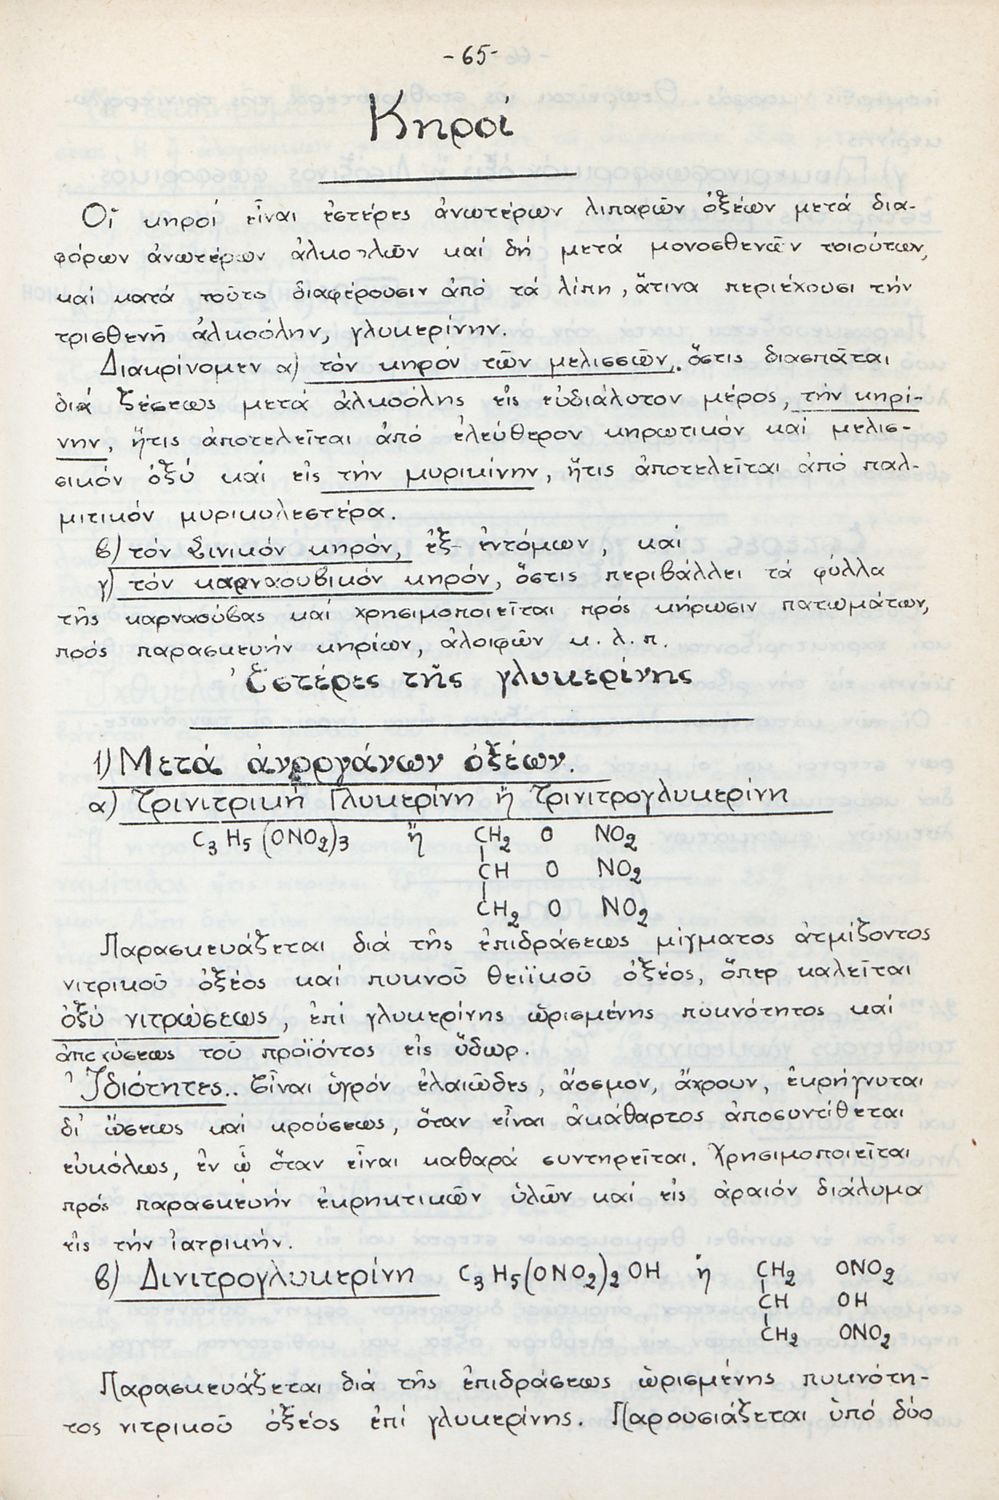 -65-
Κηροί
Οἵ κηροί εἶναι ἐστέρες ἀνωτέρων λιπαρῶν ὀξέων μετά δια-
φόρων ἀνωτέρων ἀλκοολῶν καί δή μετά μονοσθενῶν τοιούτων,
καί κατά τοῦτο διαφέρουσιν ἀπό τά λίπη, ἅτινα περιέχουσι τήν
τρισθενῆ ἀλκοόλην, γλυκερίνην.
Διακρίνομεν α) τόν κηρόν τῶν μελισσῶν, ὅστις διασπᾶται
διά ζέσεως μετά ἀλκοόλης εἰς εὐδιάλυτον μέρος, τήν κηρί-
νην, ἥτις ἀποτελεῖται ἀπό ἐλεύθερον κηρωτικόν καί μελισ-
σικόν ὀξύ καί εἰς τήν μυρικίνην, ἥτις ἀποτελεῖται ἀπό παλ-
μιτικόν μυρικυλεστέρα.
β) τόν Σινικόν κηρόν, ἐξ ἐντόμων, καί
γ) τόν καρναουβικόν κηρόν, ὅστις περιβάλλει τά φύλλα
τῆς καρναούβας καί χρησιμοποιεῖται πρός κήρωσιν πατωμάτων,
πρός παρασκευήν κηρίων, ἀλοιφῶν κ.λ.π.
Ἐστέρες τῆς γλυκερίνης
1) Μετά ἀνοργάνων ὀξέων.
α) Τρινιτρική Γλυκερίνη ἤ Τρινιτρογλυκερίνη
C3H5(ONO2)3 ἤ CH2 O NO2
CH O NO2
CH2 O NO2
Παρασκευάζεται διά τῆς ἐπιδράσεως μίγματος ἀτμίζοντος
νιτρικοῦ ὀξέος καί πυκνοῦ θειϊκοῦ ὀξέος, ὅπερ καλεῖται
ὀξύ νιτρώσεως, ἐπί γλυκερίνης ὡρισμένης πυκνότητος καί
ἀποχύσεως τοῦ προϊόντος εἰς ὕδωρ.
Ἰδιότητες.. Εἶναι ὑγρόν ἐλαιῶδες, ἄοσμον, ἄχρουν, ἐκρήγνυται
δι' ὤσεως καί κρούσεως, ὅταν εἶναι ἀκάθαρτος ἀποσυντίθεται
εὐκόλως, ἐν ᾧ ὅταν εἶναι καθαρά συντηρεῖται. Χρησιμοποιεῖται
πρός παρασκευήν ἐκρηκτικῶν ὑλῶν καί εἰς ἀραιόν διάλυμα
εἰς τήν ἰατρικήν.
β) Δινιτρογλυκερίνη C3H5(ONO2)2OH ἤ CH2 ONO2
CH OH
CH2 ONO2
Παρασκευάζεται διά τῆς ἐπιδράσεως ὡρισμένης πυκνότη-
τος νιτρικοῦ ὀξέος ἐπί γλυκερίνης. Παρουσιάζεται ὑπό δύο